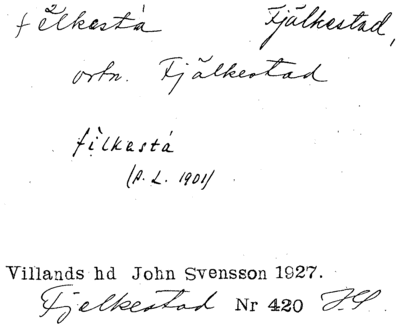 fĕlkestá Fjälkestad,
ortn. Fjälkestad
fìlkastá
(P. L. 1901)
Villands hd John Svensson 1927.
Fjelkestad Nr 420